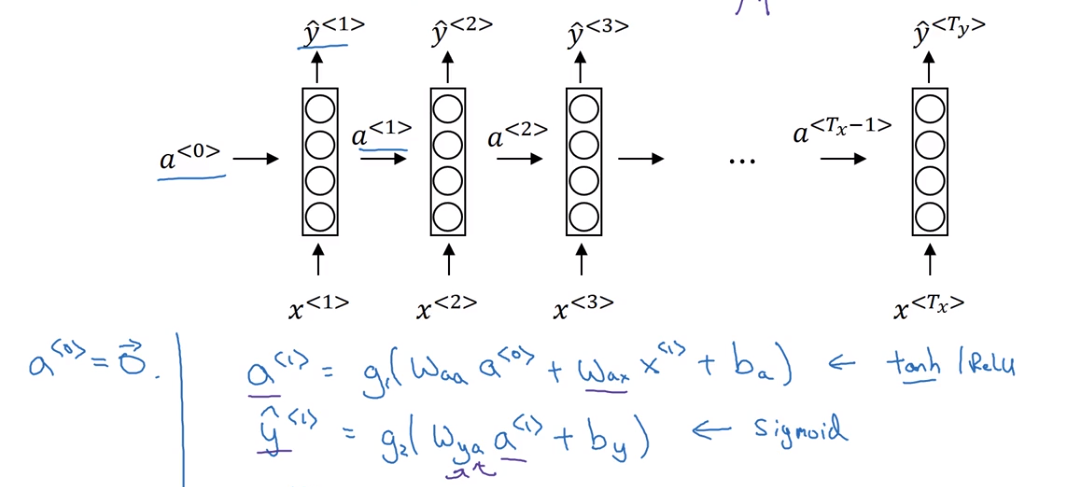 ŷ<1> ŷ<2> ŷ<3> ŷ<Ty>
a<0> a<1> a<2> ... a<Tx−1>
x<1> x<2> x<3> x<Tx>
a<0> = 0⃗.
a<1> = g₁(Waa a<0> + Wax x<1> + ba) ← tanh / ReLU
ŷ<1> = g₂(Wya a<1> + by) ← sigmoid